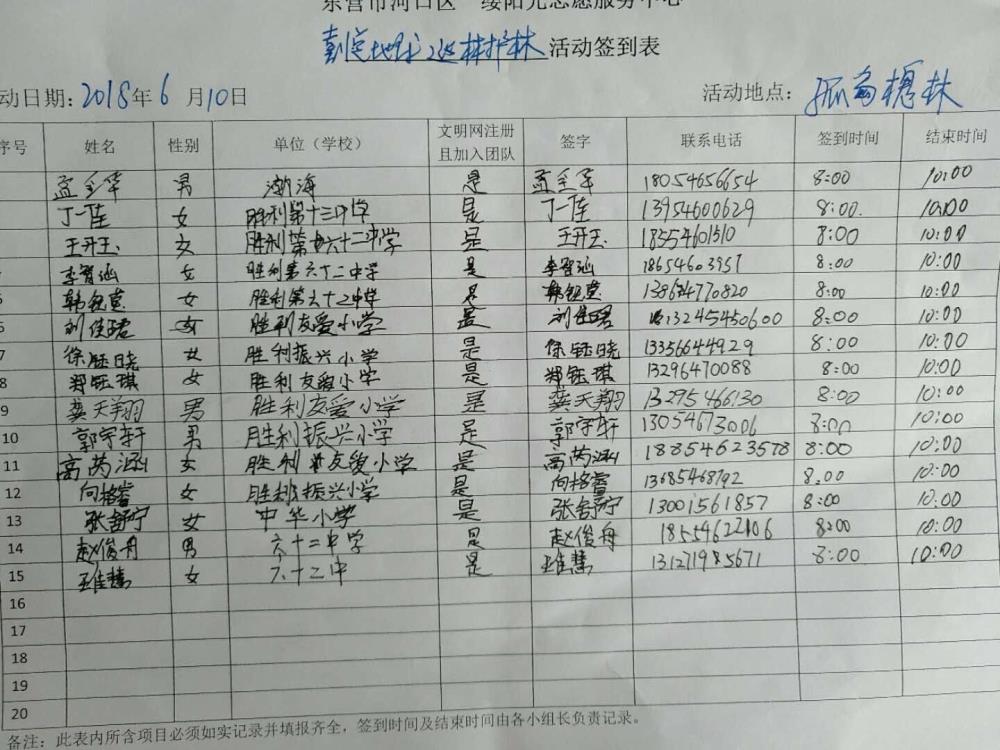 东营市河口区一缕阳光志愿服务中心
地球 巡林护林 活动签到表
动日期：2018年6月10日 活动地点：孤岛槐林
序号 姓名 性别 单位（学校） 文明网注册且加入团队 签字 联系电话 签到时间 结束时间
孟全军 男 渤海 是 孟全军 18054656654 8:00 10:00
丁一佳 女 胜利第十三中学 是 丁一佳 13954600629 8:00 10:00
王开玉 女 胜利第六十二中学 是 王开玉 18554601510 8:00 10:00
李智涵 女 胜利第六十二中学 是 李智涵 18654603957 8:00 10:00
韩 女 胜利第六十二中学 是 韩 13864770820 8:00 10:00
6 刘佳珺 女 胜利友爱小学 是 刘佳珺 13245450600 8:00 10:00
7 徐钰晓 女 胜利振兴小学 是 徐钰晓 13356644929 8:00 10:00
8 郑钰琪 女 胜利友爱小学 是 郑钰琪 13296470088 8:00 10:00
9 龚天翔 男 胜利友爱小学 是 龚天翔 13295466130 8:00 10:00
10 郭宇轩 男 胜利振兴小学 是 郭宇轩 13054673006 8:00 10:00
11 高芮涵 女 胜利友爱小学 是 高芮涵 18854623578 8:00 10:00
12 向格睿 女 胜利振兴小学 是 向格睿 13685468792 8:00 10:00
13 张舒宁 女 中华小学 是 张舒宁 13001561857 8:00 10:00
14 赵俊舟 男 六十二中学 是 赵俊舟 18554622106 8:00 10:00
15 王佳慧 女 六十二中 是 王佳慧 131271985671 8:00 10:00
16
17
18
19
20
备注：此表内所含项目必须如实记录并填报齐全，签到时间及结束时间由各小组长负责记录。